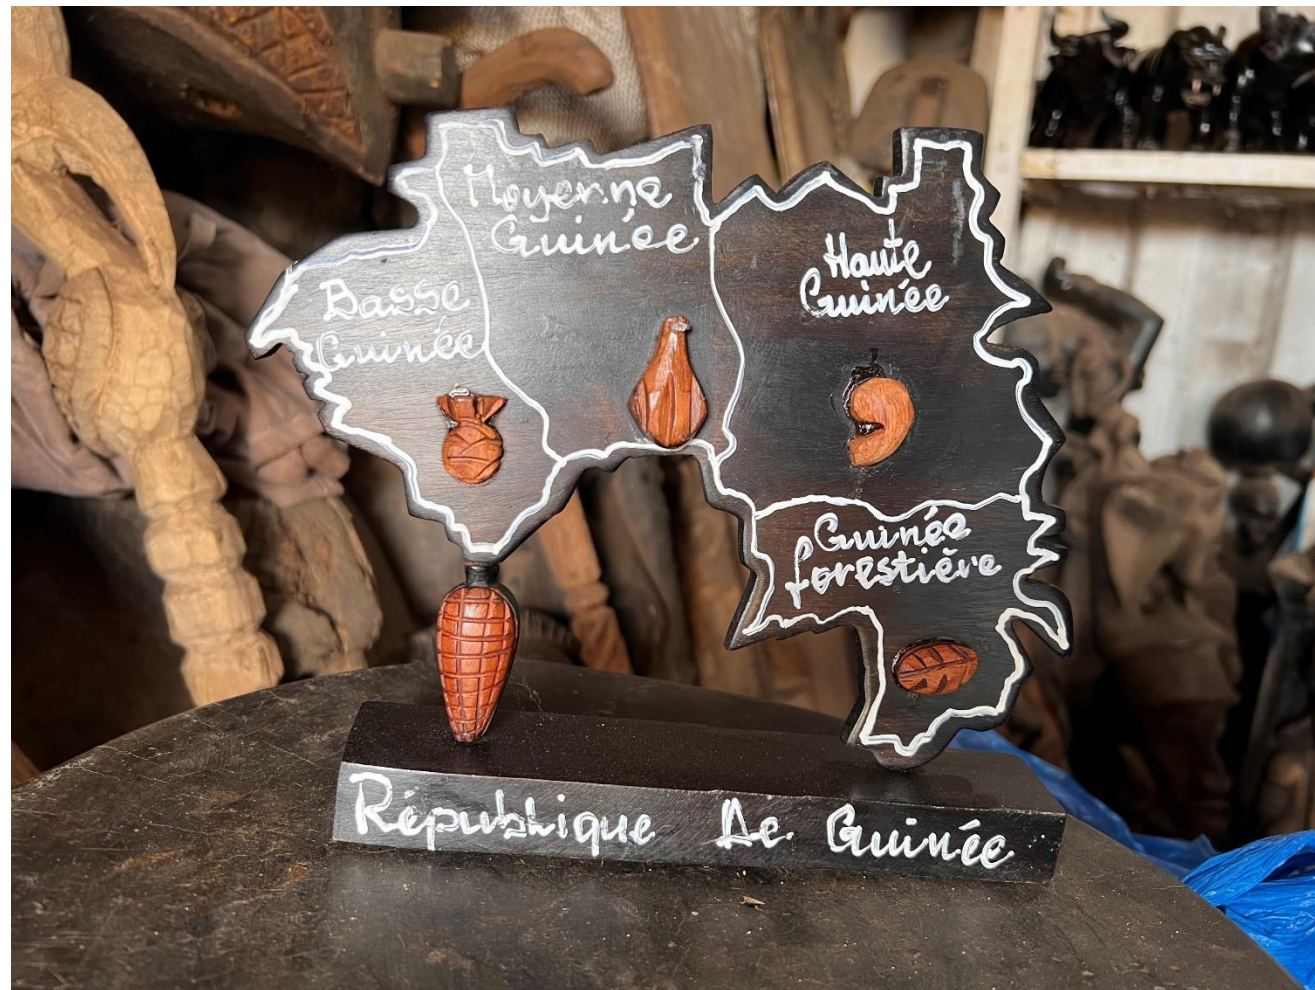 Moyenne
Guinée
Basse
Guinée
Haute
Guinée
Guinée
forestière
République De Guinée